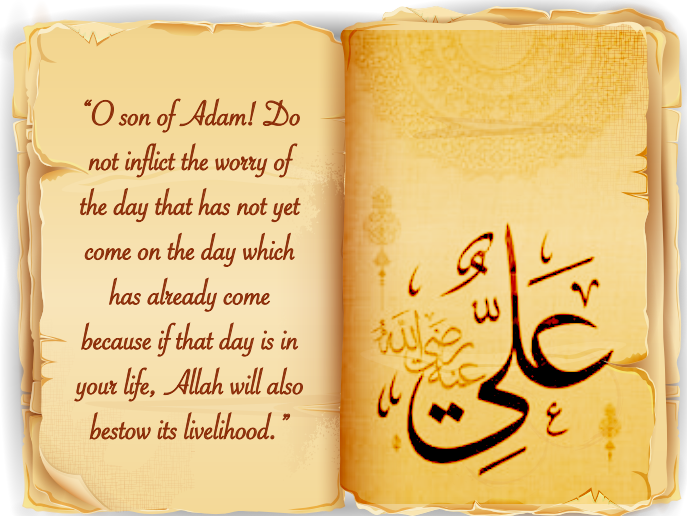 “O son of Adam! Do
not inflict the worry of
the day that has not yet
come on the day which
has already come
because if that day is in
your life, Allah will also
bestow its livelihood.”
عَلِيٌّ
رضي الله عنه